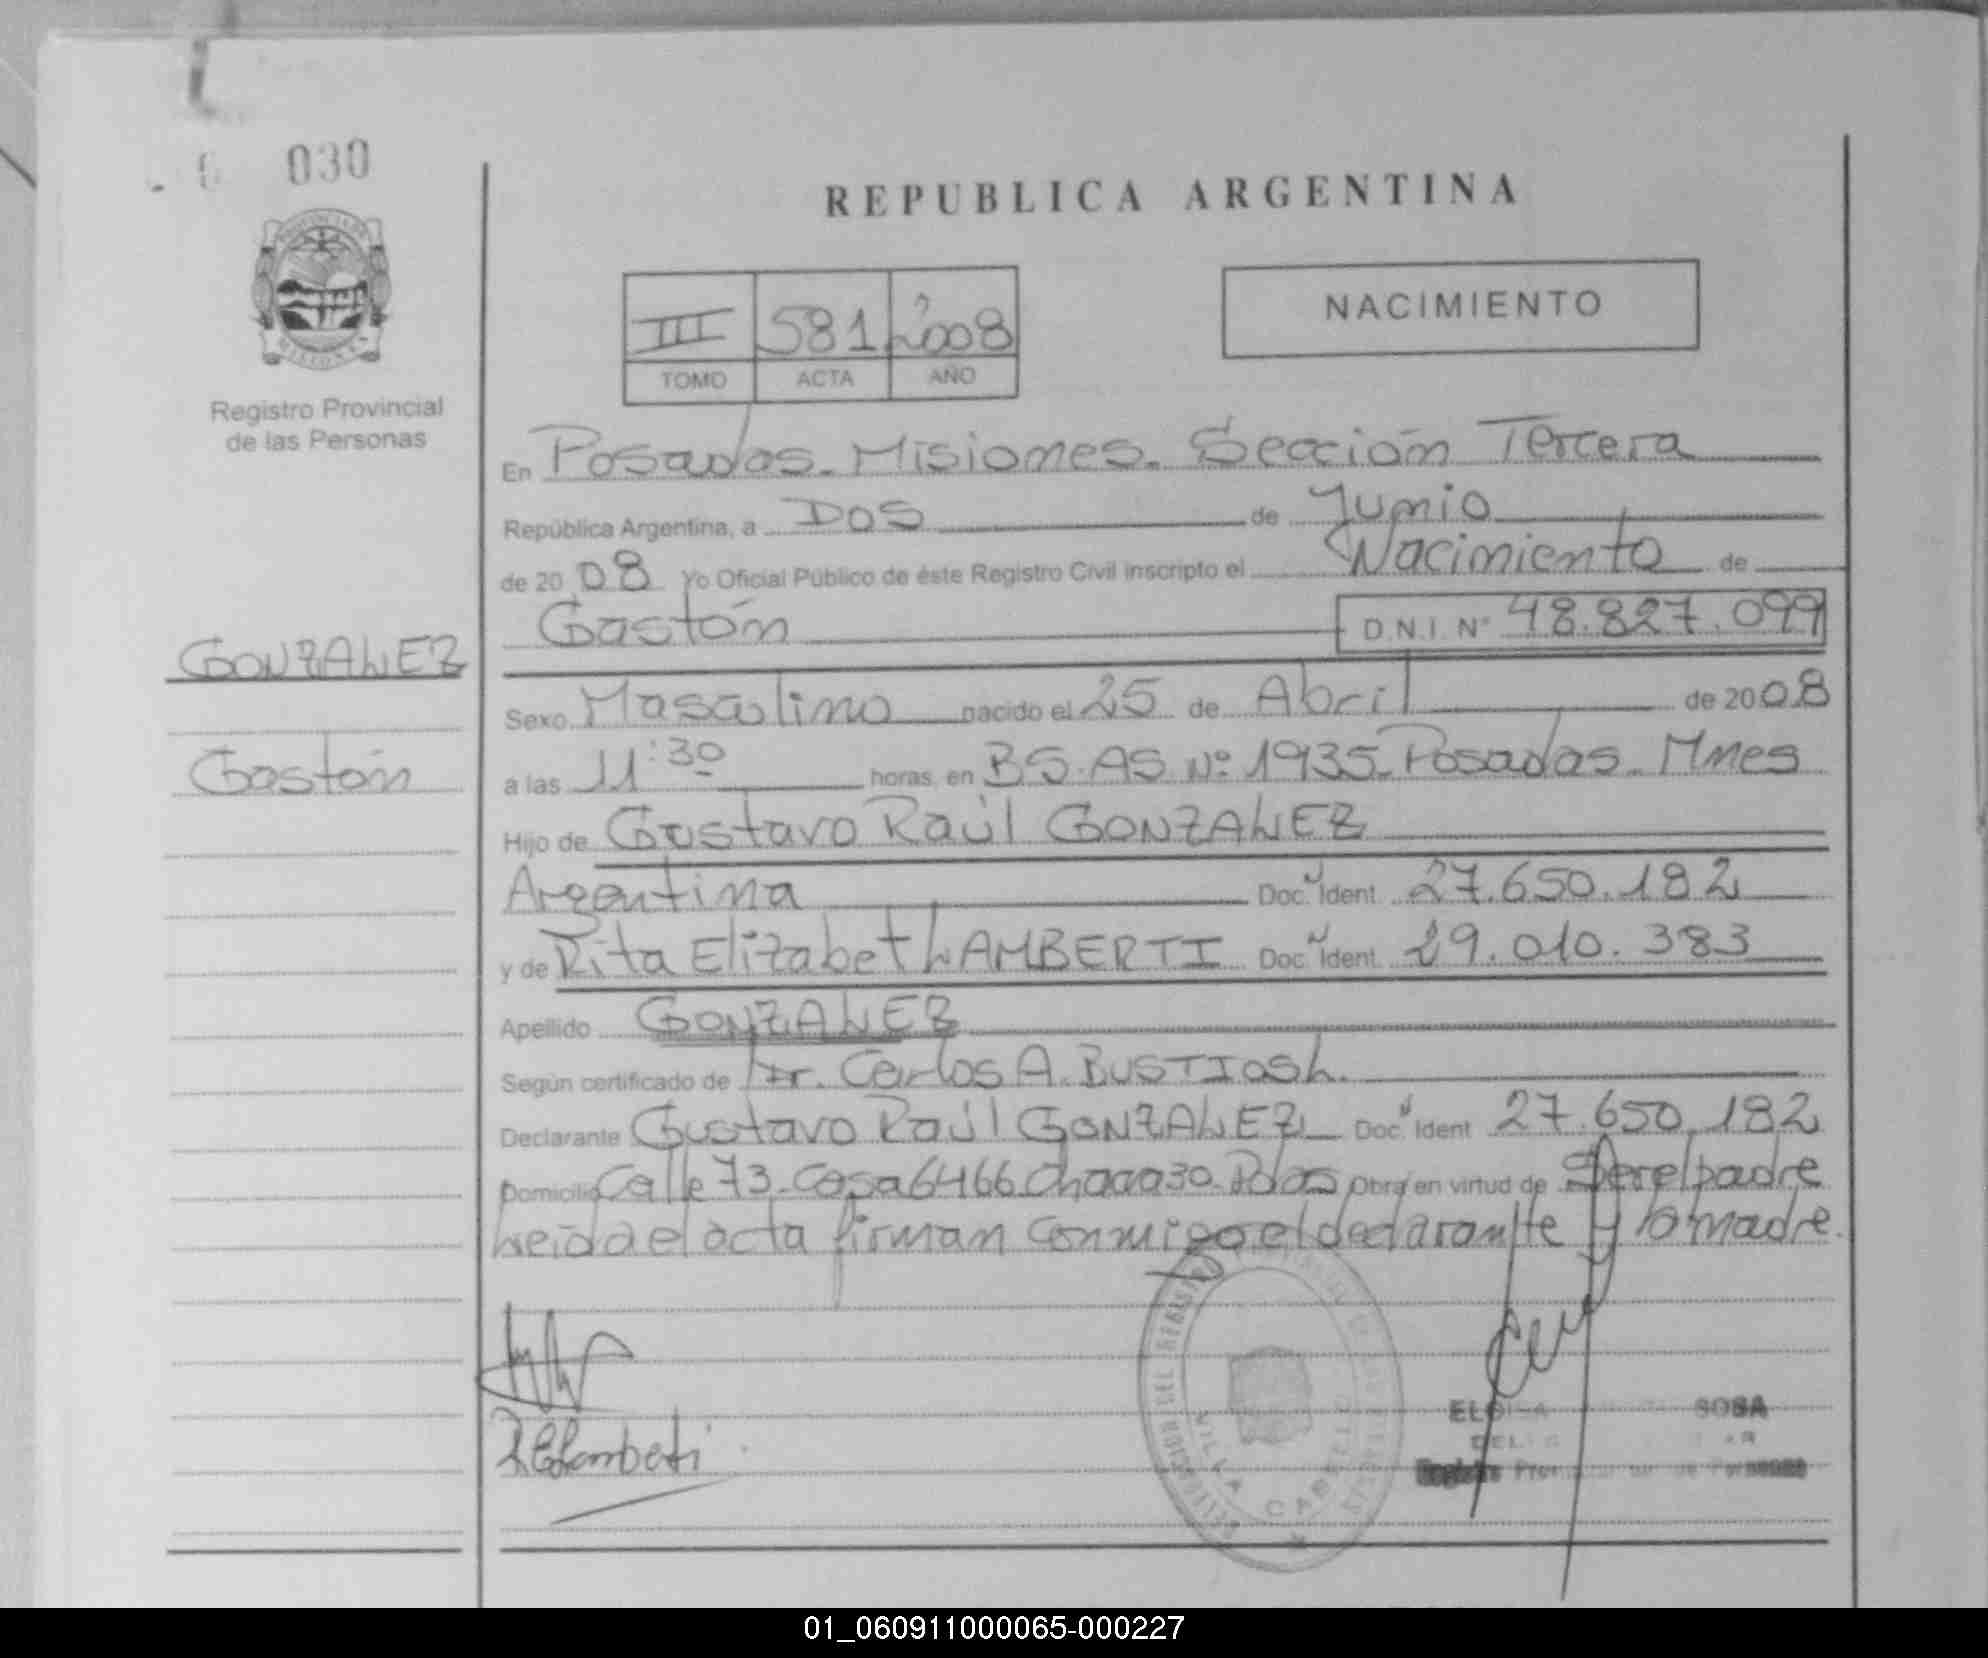 030
REPUBLICA ARGENTINA
III 581 2008
TOMO ACTA AÑO
NACIMIENTO
PROVINCIA DE
MISIONES
Registro Provincial
de las Personas
En Posadas. Misiones. Sección Tercera
República Argentina, a Dos de Junio
de 20 08 Yo Oficial Público de éste Registro Civil inscripto el Nacimiento de
Gastón D.N.I. Nº 48.827.099
GONZALEZ
Gastón
Sexo Masculino nacido el 25 de Abril de 2008
a las 11:30 horas, en BS.AS Nº 1935. Posadas. Mnes
Hijo de Gustavo Raúl GONZALEZ
Argentina Doc. Ident. 27.650.182
y de Rita Elizabet LAMBERTI Doc. Ident. 29.010.383
Apellido GONZALEZ
Según certificado de Dr. Carlos A.
Declarante Gustavo Raúl GONZALEZ Doc. Ident 27.650.182
Domicilio Calle 73. Casa 6466 Chacra 30. Pdas Obra en virtud de Ser el padre
Leida el acta firman conmigo el declarante y la madre.
R E Lamberti
VILLA CABELLO
ELOISA SOSA
01_060911000065-000227